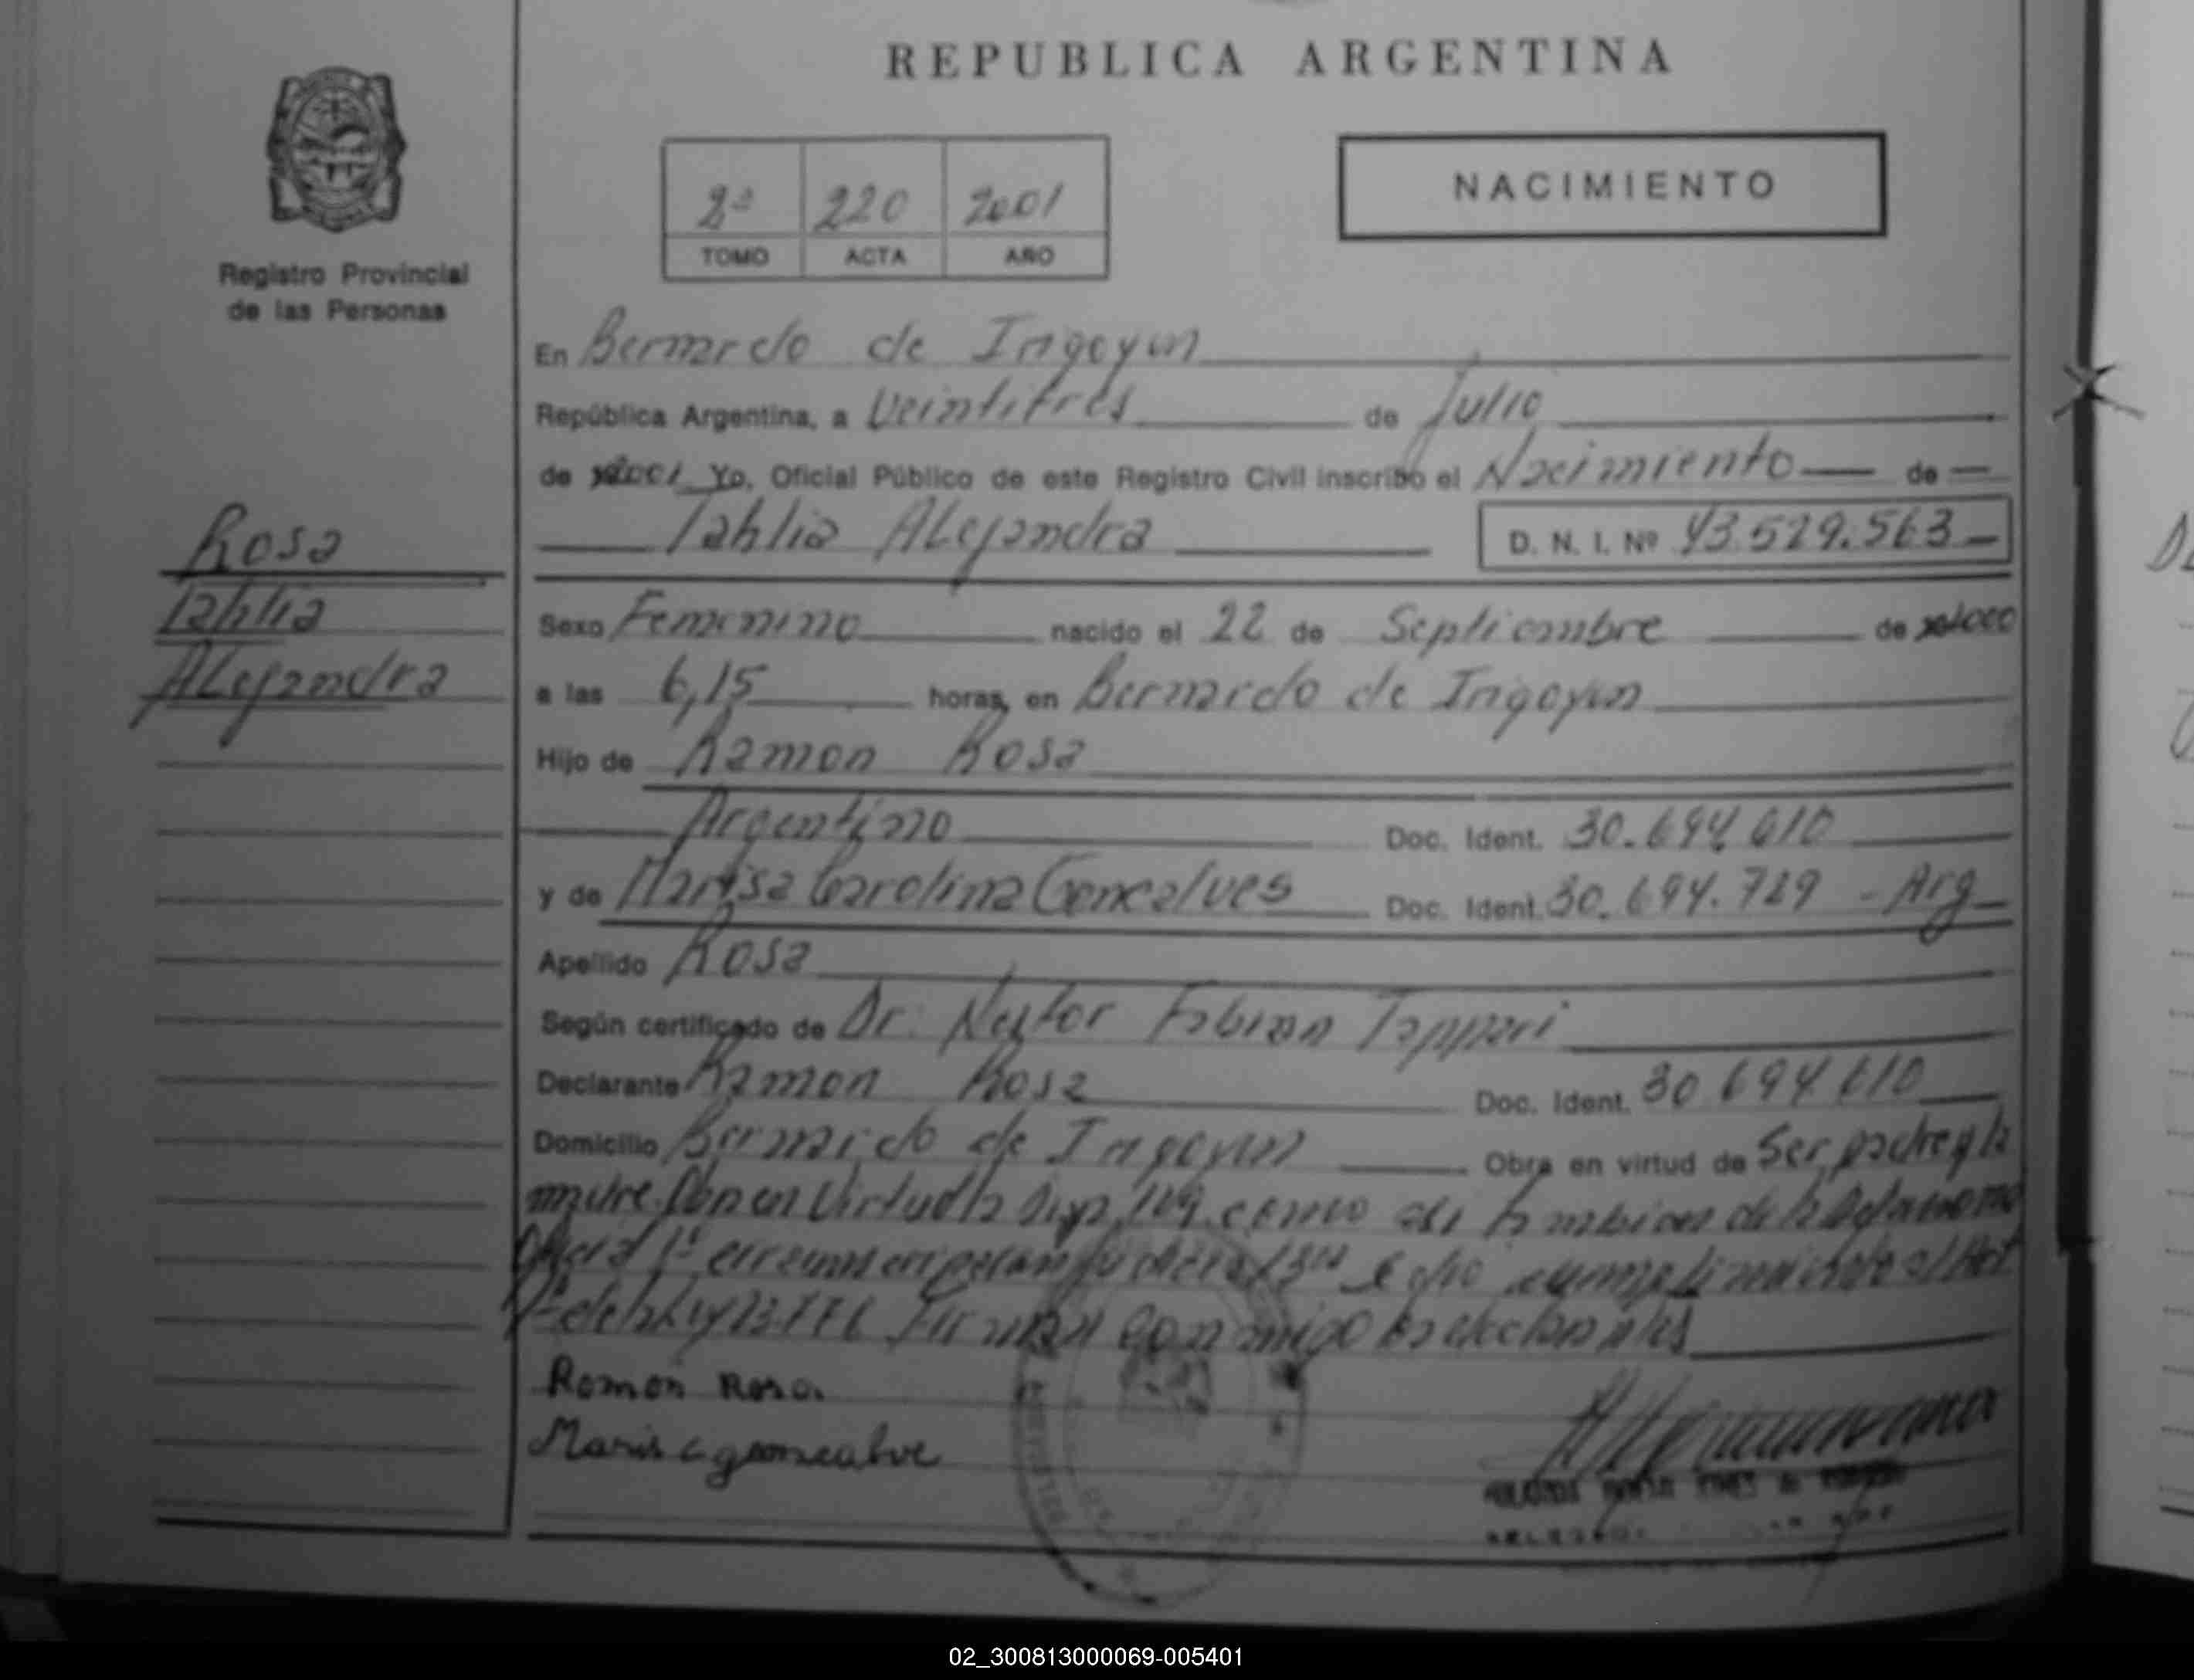 REPUBLICA ARGENTINA
2º 220 2001
TOMO ACTA AÑO
NACIMIENTO
Registro Provincial
de las Personas
En Bernardo de Irigoyen
República Argentina, a Veintitres de Julio
de 2001 Yo, Oficial Público de este Registro Civil inscribo el Nacimiento de
Tahlia Alejandra D. N. I. Nº 43.529.563
Rosa
Tahlia
Alejandra
Sexo Femenino nacido el 22 de Septiembre de 2000
a las 6,15 horas, en Bernardo de Irigoyen
Hijo de Ramon Rosa
Argentino Doc. Ident. 30.694.610
y de Marisa Carolina Goncalves Doc. Ident. 30.694.729 - Arg
Apellido Rosa
Según certificado de Dr. Nestor Fabian Tappari
Declarante Ramon Rosa Doc. Ident. 30 694 610
Domicilio Bernardo de Irigoyen Obra en virtud de Ser padre y la
madre. en Virtud la como de la
1º al Art
de la Ley Firman conmigo los declarantes
Ramon Rosa.
Maris c goncalve
02_300813000069-005401